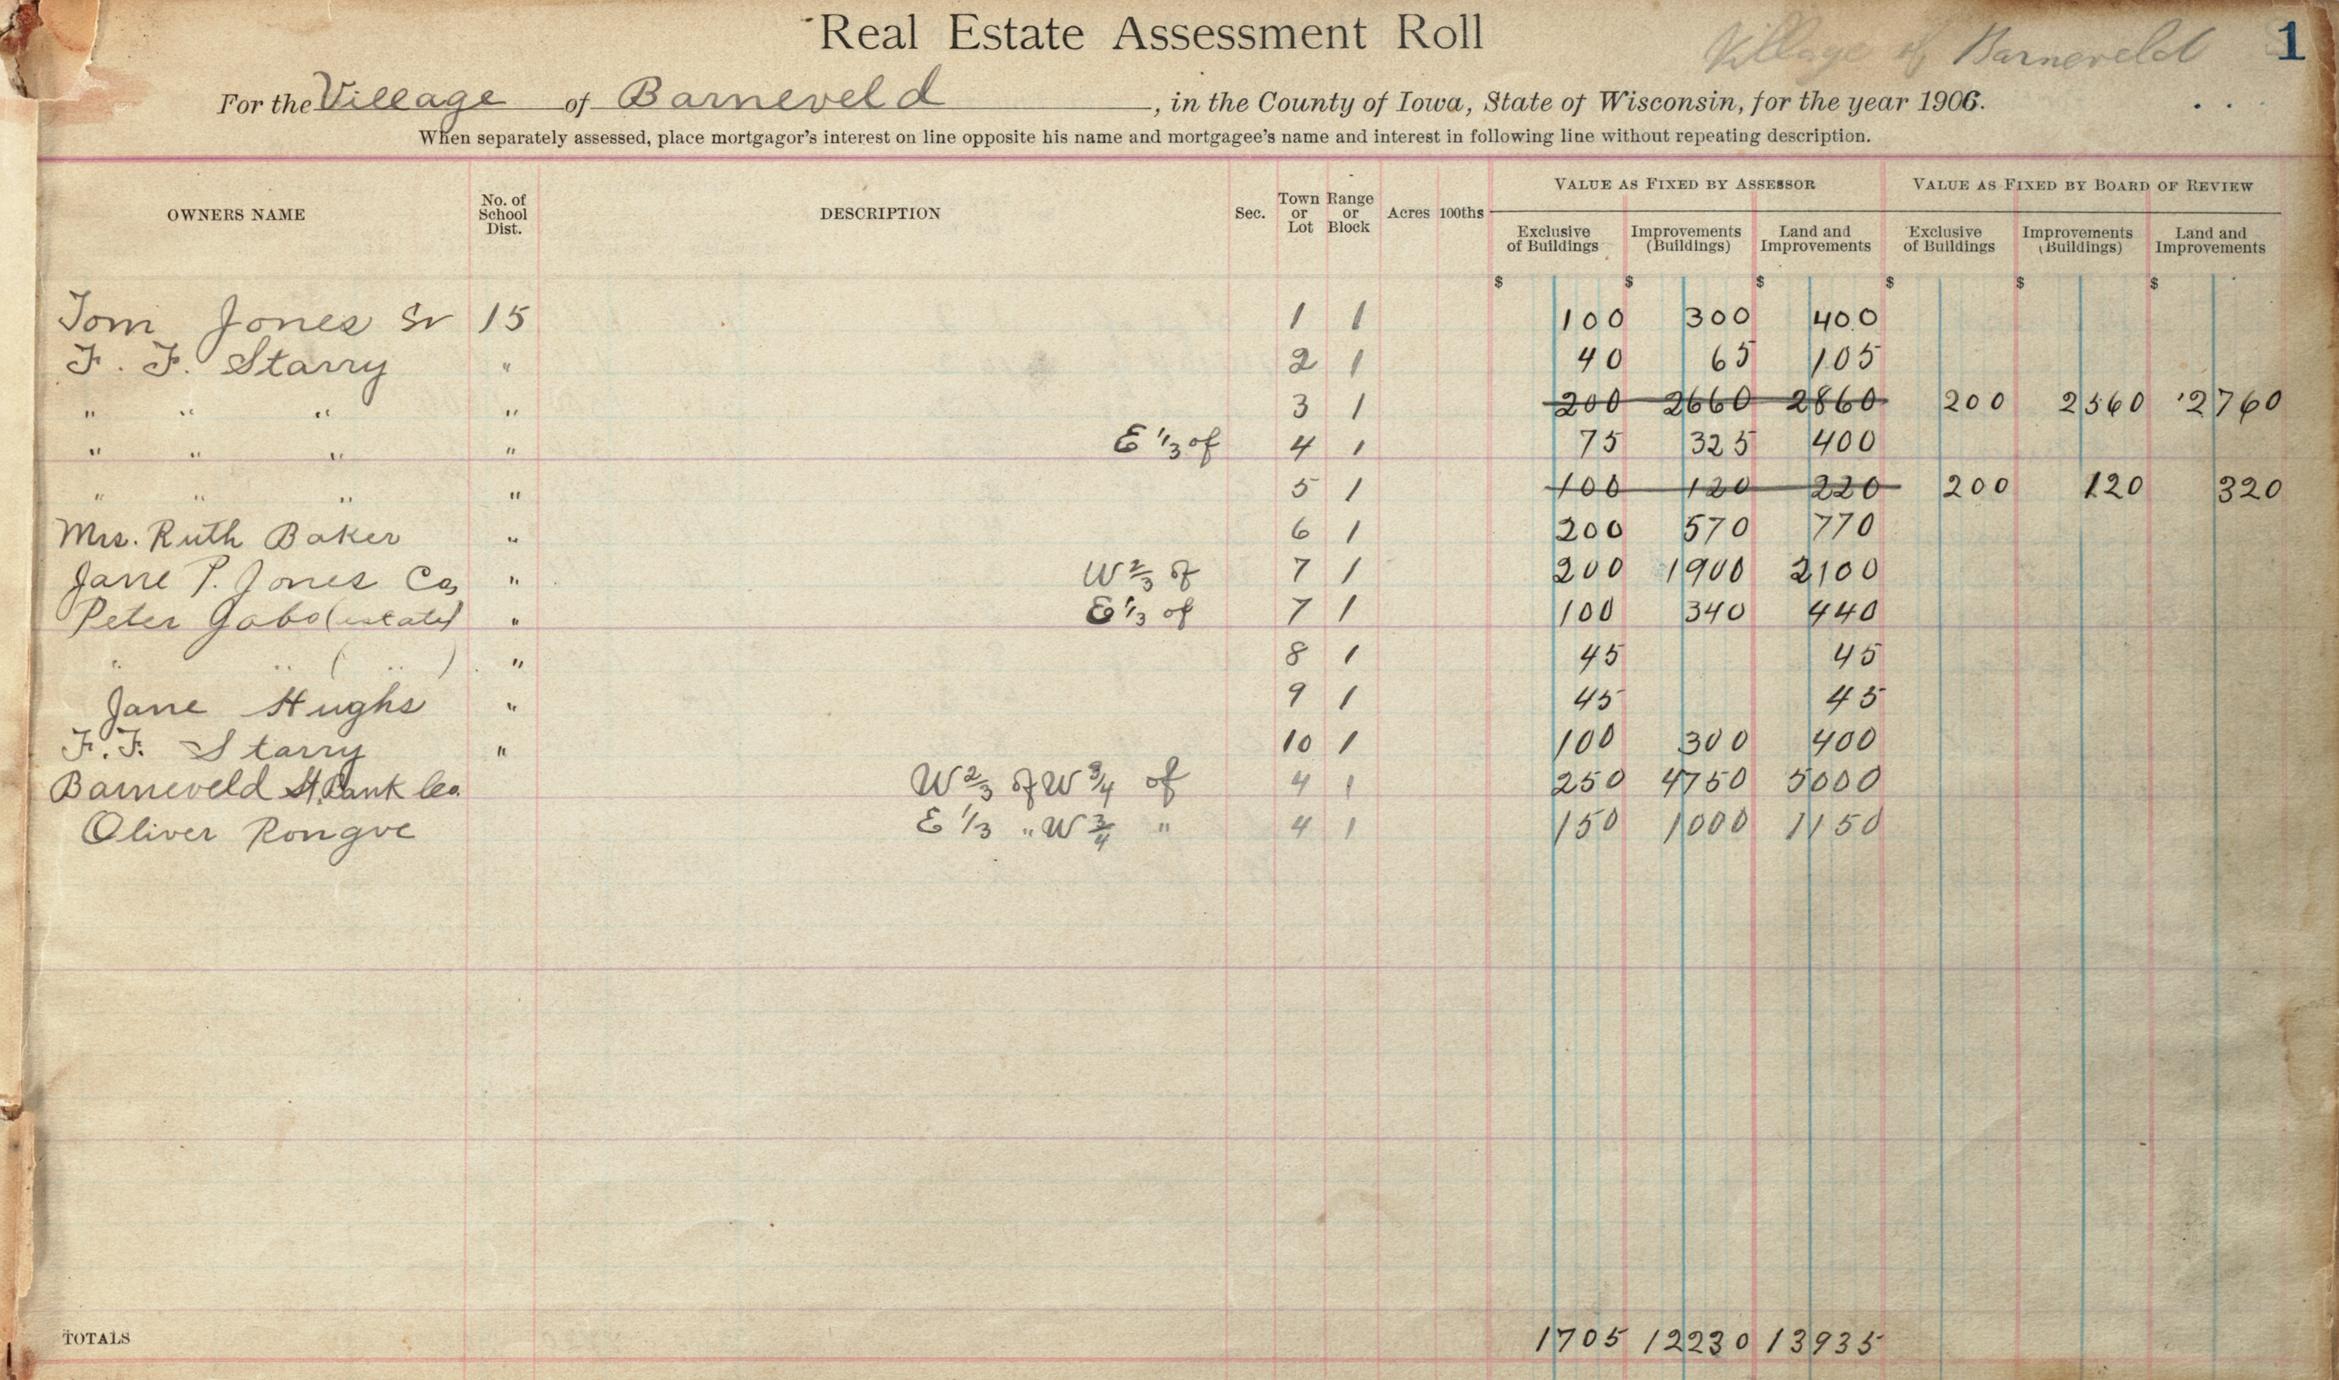 Real Estate Assessment Roll
Village of Barneveld
1
For the Village of Barneveld, in the County of Iowa, State of Wisconsin, for the year 1906.
When separately assessed, place mortgagor's interest on line opposite his name and mortgagee's name and interest in following line without repeating description.
VALUE AS FIXED BY ASSESSOR VALUE AS FIXED BY BOARD OF REVIEW
OWNERS NAME No. of School Dist. DESCRIPTION Sec. Town or Lot Range or Block Acres 100ths Exclusive of Buildings Improvements (Buildings) Land and Improvements Exclusive of Buildings Improvements (Buildings) Land and Improvements
$ $ $ $ $ $
Tom Jones Sr 15 1 1 100 300 400
F. F. Starry " 2 1 40 65 105
" " " " 3 1 200 2660 2860 200 2560 2760
" " " " E 1/3 of 4 1 75 325 400
" " " " 5 1 100 120 220 200 120 320
Mrs. Ruth Baker " 6 1 200 570 770
Jane P. Jones Co, " W 2/3 of 7 1 200 1900 2100
Peter Gabo (estate) " E 1/3 of 7 1 100 340 440
" " ( " ) " 8 1 45 45
Jane Hughs " 9 1 45 45
F. F. Starry " 10 1 100 300 400
Barneveld St. Bank Co. W 2/3 of W 3/4 of 4 1 250 4750 5000
Oliver Rongve E 1/3 " W 3/4 " 4 1 150 1000 1150
TOTALS 1705 12230 13935